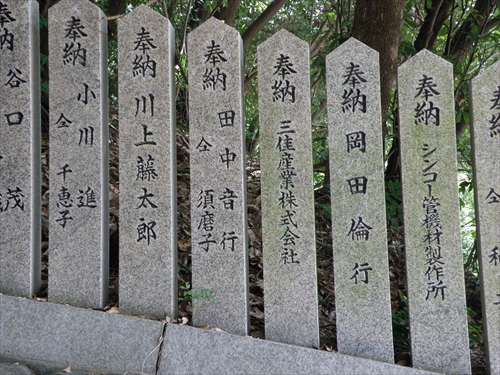 奉納
シンコー管機材製作所
奉納
岡田倫行
奉納
三佳産業株式会社
奉納
田中音行
仝 須磨子
奉納
川上藤太郎
奉納
小川 進
仝 千恵子
奉納
谷口
茂